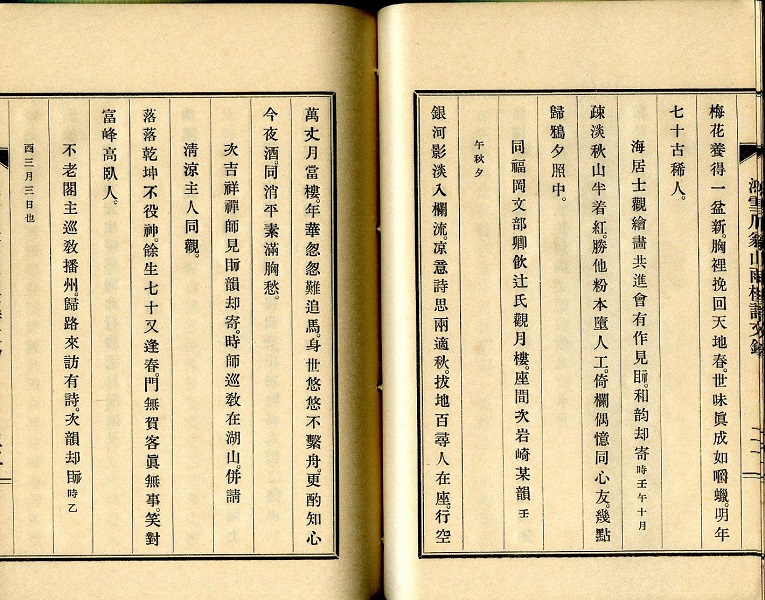 梅花養得一盆新。胸裡挽回天地春。世味眞成如嚼蠟。明年
七十古稀人。
海居士觀繪畫共進會有作見眎。和韵却寄時壬午十月
疎淡秋山半着紅。勝他粉本墮人工。倚欄偶憶同心友。幾點
歸鴉夕照中。
同福岡文部卿飮辻氏觀月樓。座間次岩崎某韻壬
午秋夕
銀河影淡入欄流。凉意詩思兩適秋。拔地百尋人在座。行空
萬丈月當樓。年華忽忽難追馬。身世悠悠不繫舟。更酌知心
今夜酒。同消平素滿胸愁。
次吉祥禪師見眎韻却寄。時師巡敎在湖山。併請
淸凉主人同觀。
落落乾坤不役神。餘生七十又逢春。門無賀客眞無事。笑對
富峰高臥人。
不老閣主巡敎播州。歸路來訪有詩。次韻却眎時乙
酉三月三日也